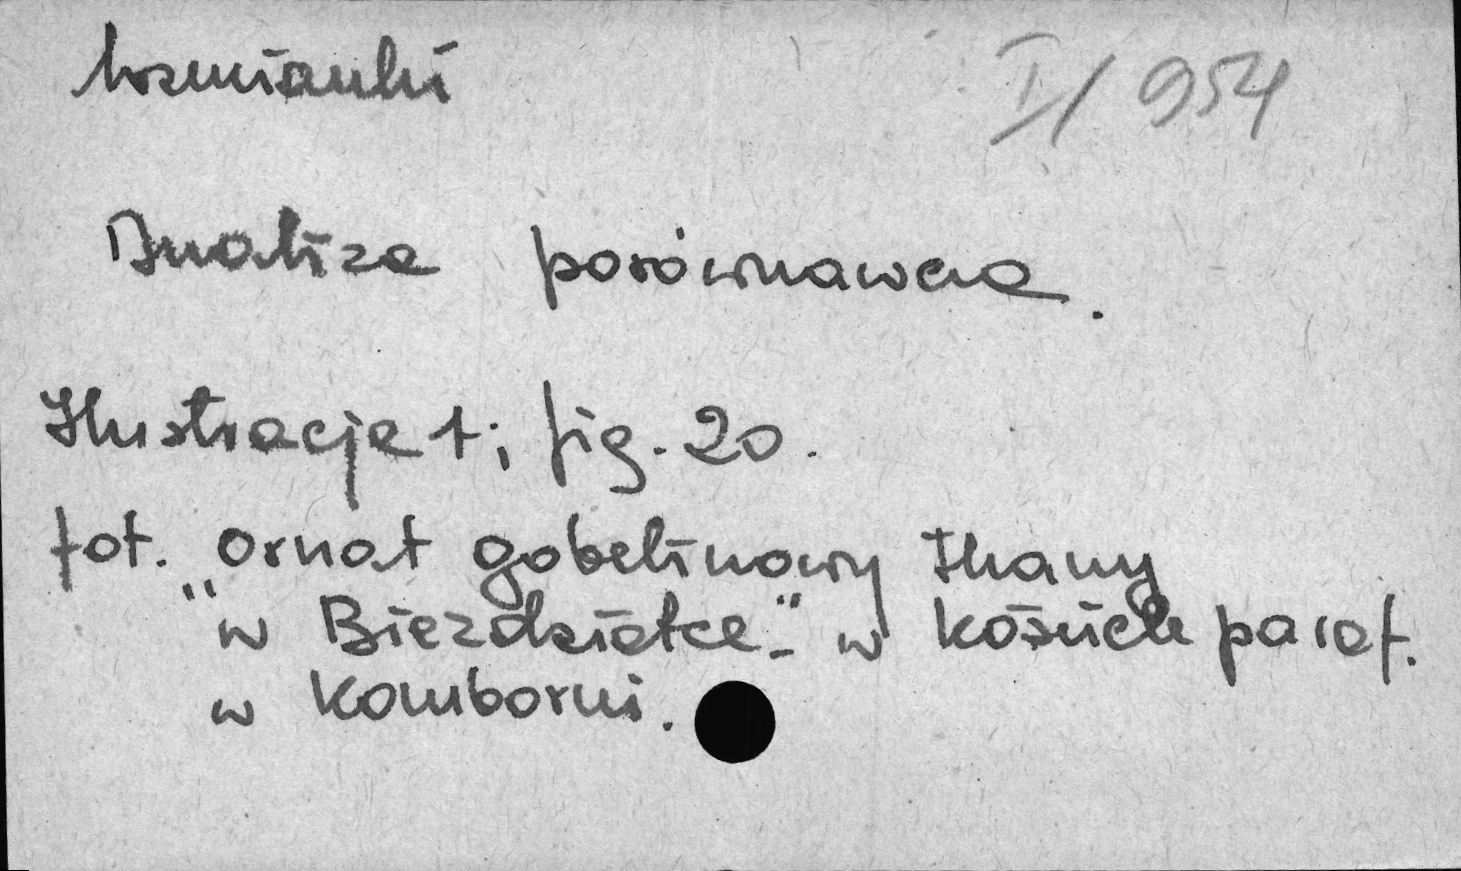 I/954
Analiza porównawcza.
Ilustracje 1; fig. 20.
fot. "Ornat gobelinowy tkany
w Bieździatce" - w kościele paraf.
w Komborni.